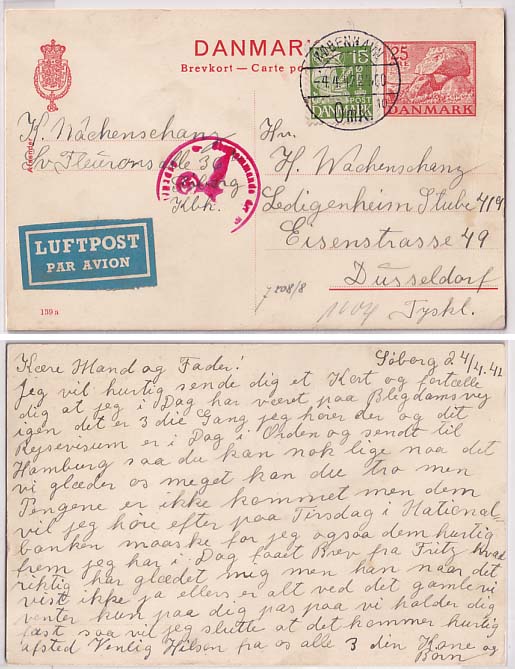 DANMARK
Brevkort — Carte po
KØBENHAVN
OMK.
15
POST
DANMARK
25
ØRE
DANMARK
Afsender:
K. Wachenschanz
Sv. Fleurons alle 36
Søborg
Kbh.
Hrr.
H. Wachenschanz
Ledigenheim Stube 419
Eisenstrasse 49
Düsseldorf
Tyskl.
LUFTPOST
PAR AVION
159 a
Søborg 24/4.42
Kære Mand og Fader!
Jeg vil hurtig sende dig et Kort og fortælle
dig at jeg i Dag har været paa Blegdamsvej
igen det er 3 die Gang jeg hører der og dit
Rejsevisum er i Dag i Orden og sendt til
Hamburg saa du kan nok lige naa det
vi glæder os meget kan du tro men
Pengene er ikke kommet men dem
vil jeg høre efter paa Tirsdag i National-
banken maaske for jeg ogsaa dem hurtig
frem jeg har i Dag faaet Brev fra Fritz hvad
rigtig har glædet mig men han naar det
vist ikke ja ellers er alt ved det gamle vi
venter kun paa dig pas paa vi holder dig
fast saa vil jeg slutte at det kommer hurtig
afsted Venlig Hilsen fra os alle 3 din Kone og
Børn